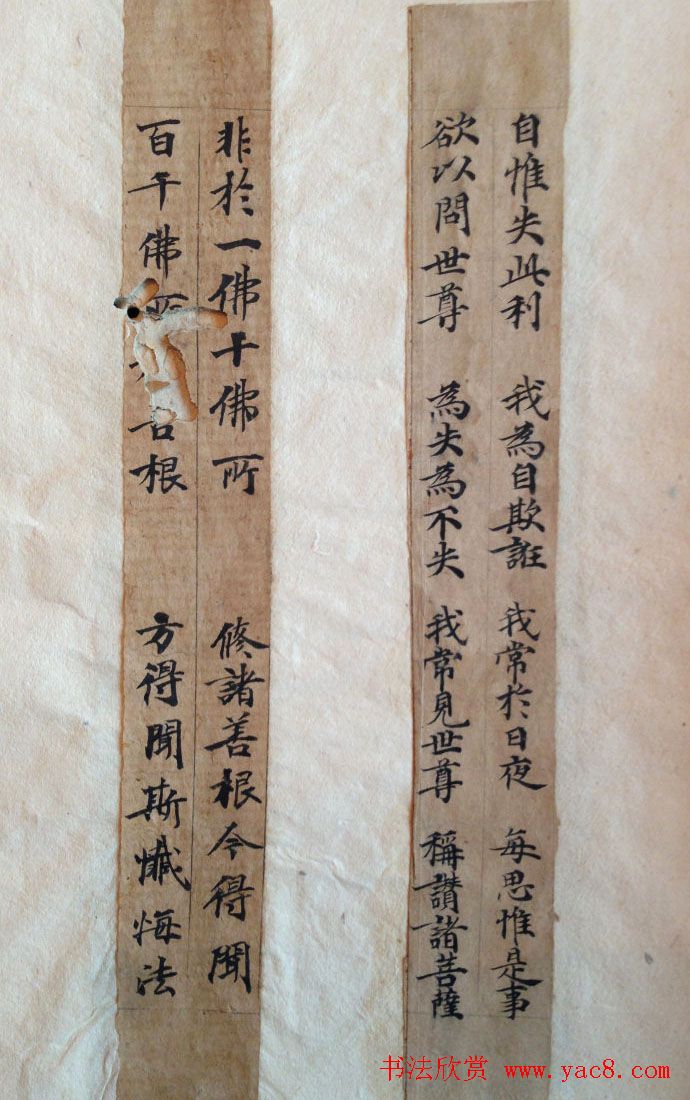 自惟失此利 我為自欺誑 我常於日夜 每思惟是事
欲以問世尊 為失為不失 我常見世尊 稱讚諸菩薩
非於一佛十佛所 修諸善根今得聞
百千佛所善根 方得聞斯懺悔法
书法欣赏 www.yac8.com